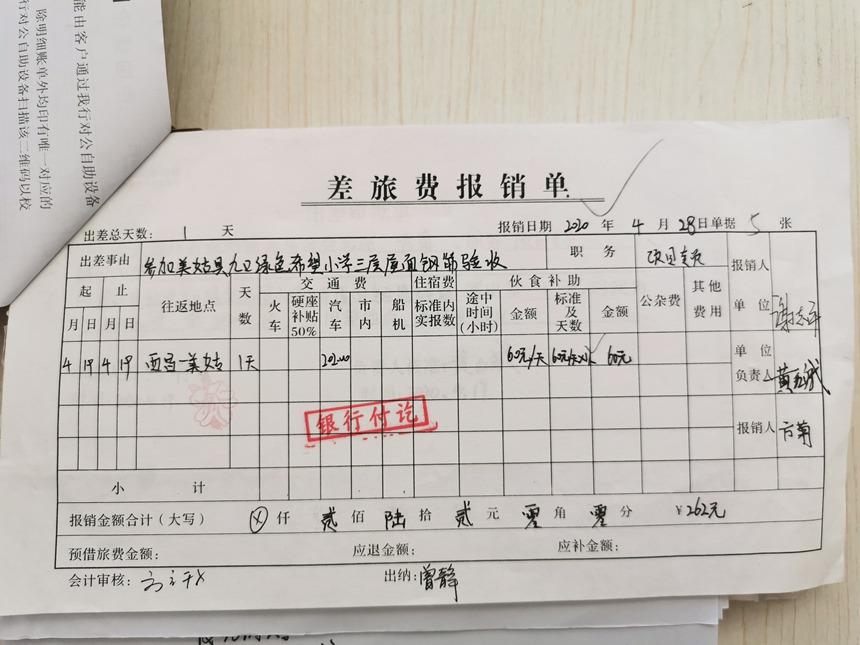 能由客户通过我行对公自助设备
除明细账单外均印有唯一对应的
行对公自助设备扫描该二维码以校
差旅费报销单
出差总天数: 1 天 报销日期 2020 年 4 月 28 日 单据 5 张
出差事由 参加美姑县九口绿色希望小学三层屋面钢筋验收 职务 报销人
起 止 往返地点 天数 交通费 住宿费 伙食补助 公杂费 其他费用
月 日 月 日 火车 硬座补贴50% 汽车 市内 船机 标准内实报数 途中时间(小时) 金额 标准及天数 金额 单位
4 19 4 19 西昌-美姑 1天 202.00 60元/天 60元/天x1 60元 单位负责人
银行付讫
报销人 方菊
小计
报销金额合计(大写) ⊗ 仟 贰 佰 陆 拾 贰 元 零 角 零 分 ¥262元
预借旅费金额: 应退金额: 应补金额:
会计审核: 出纳: 曾静